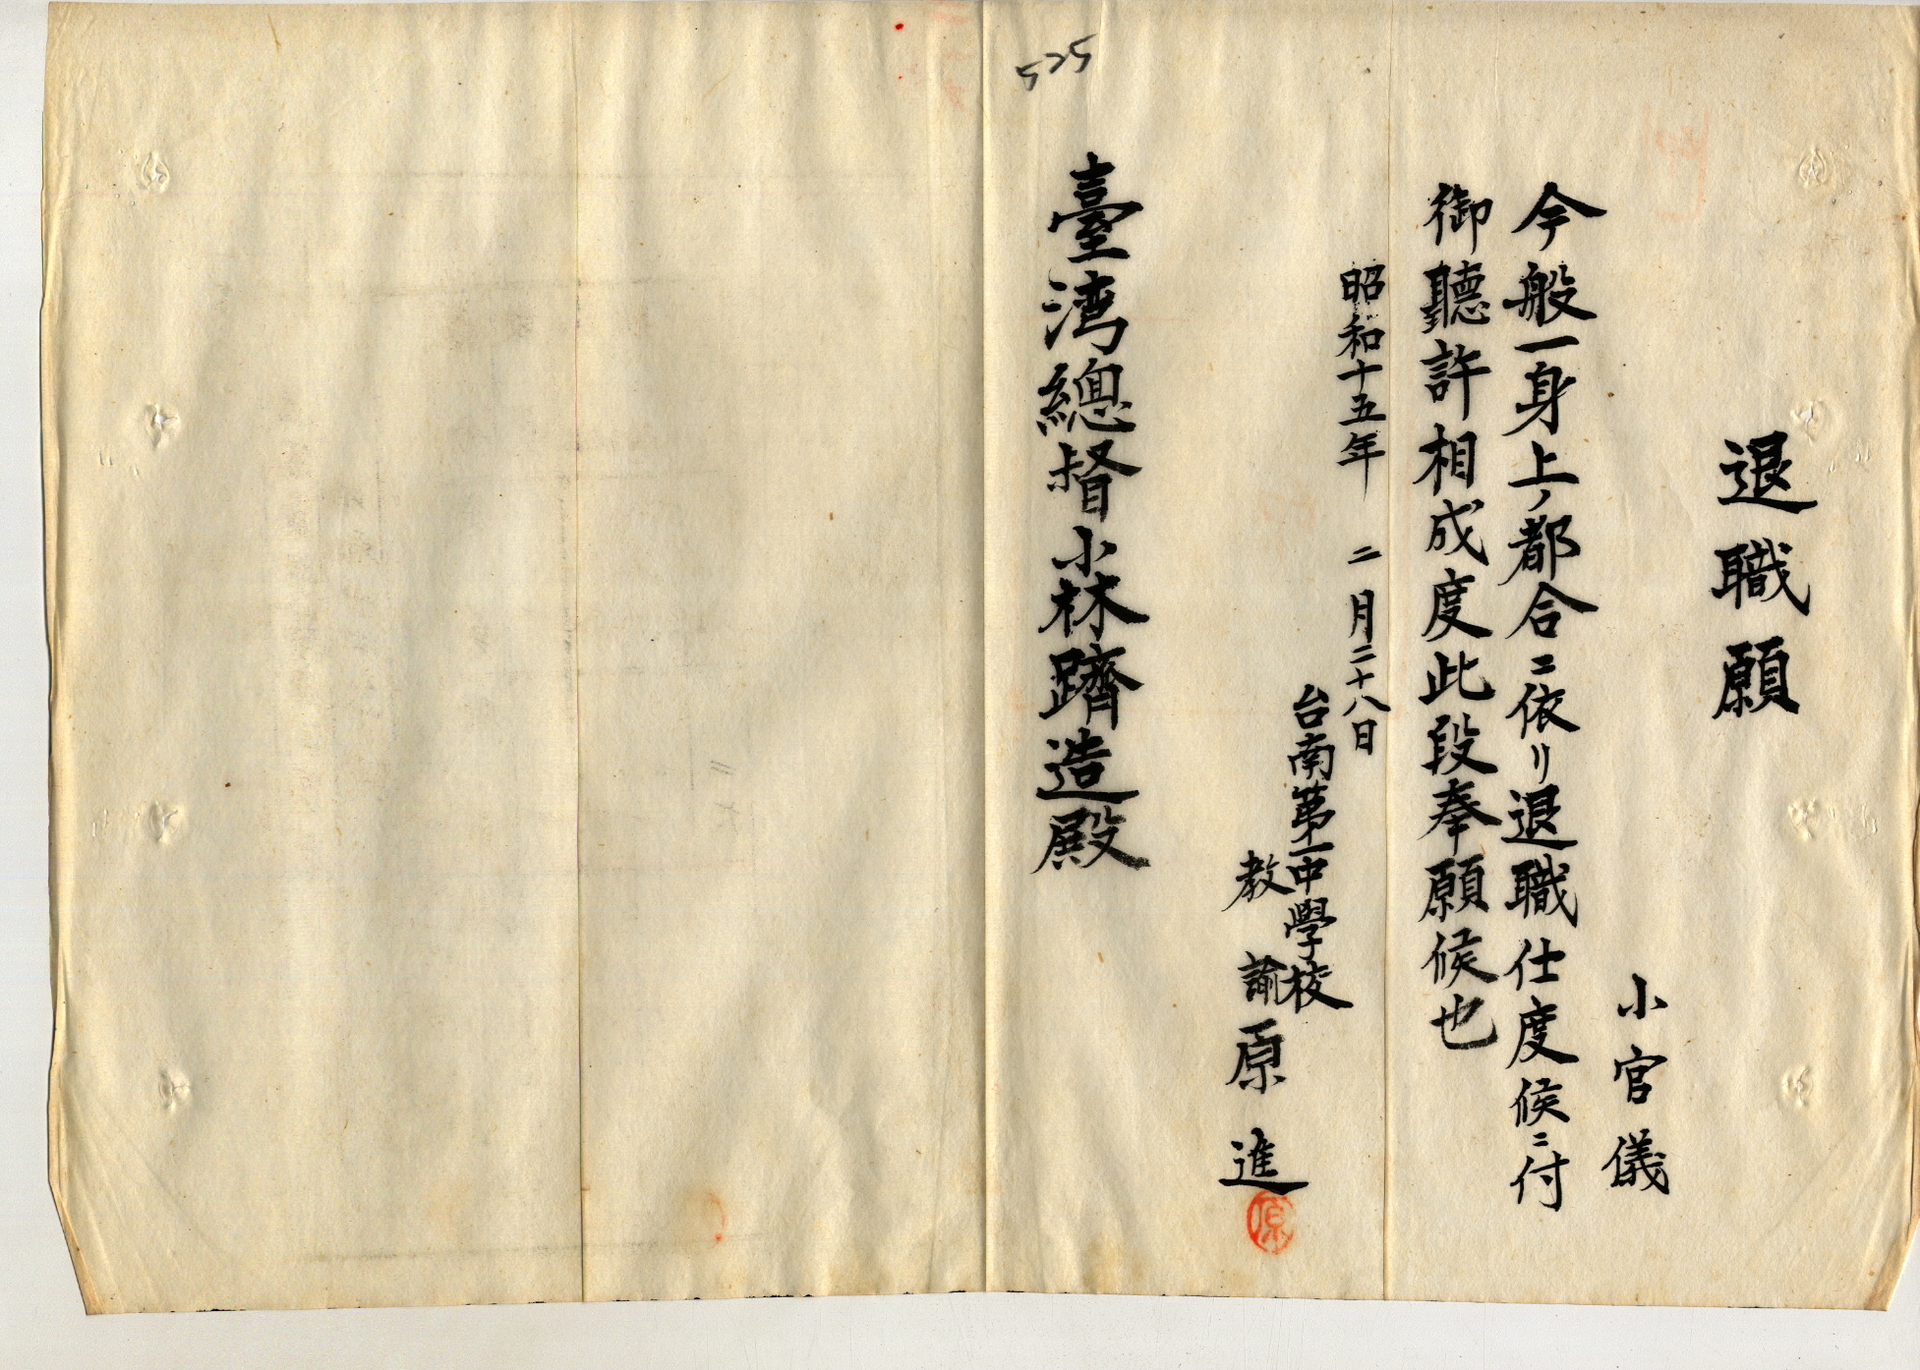 退職願
小官儀
今般一身上ノ都合ニ依リ退職仕度候ニ付
御聽許相成度此段奉願候也
昭和十五年 二月二十八日
台南第一中學校
教諭 原進
原
臺湾總督小林躋造殿
525